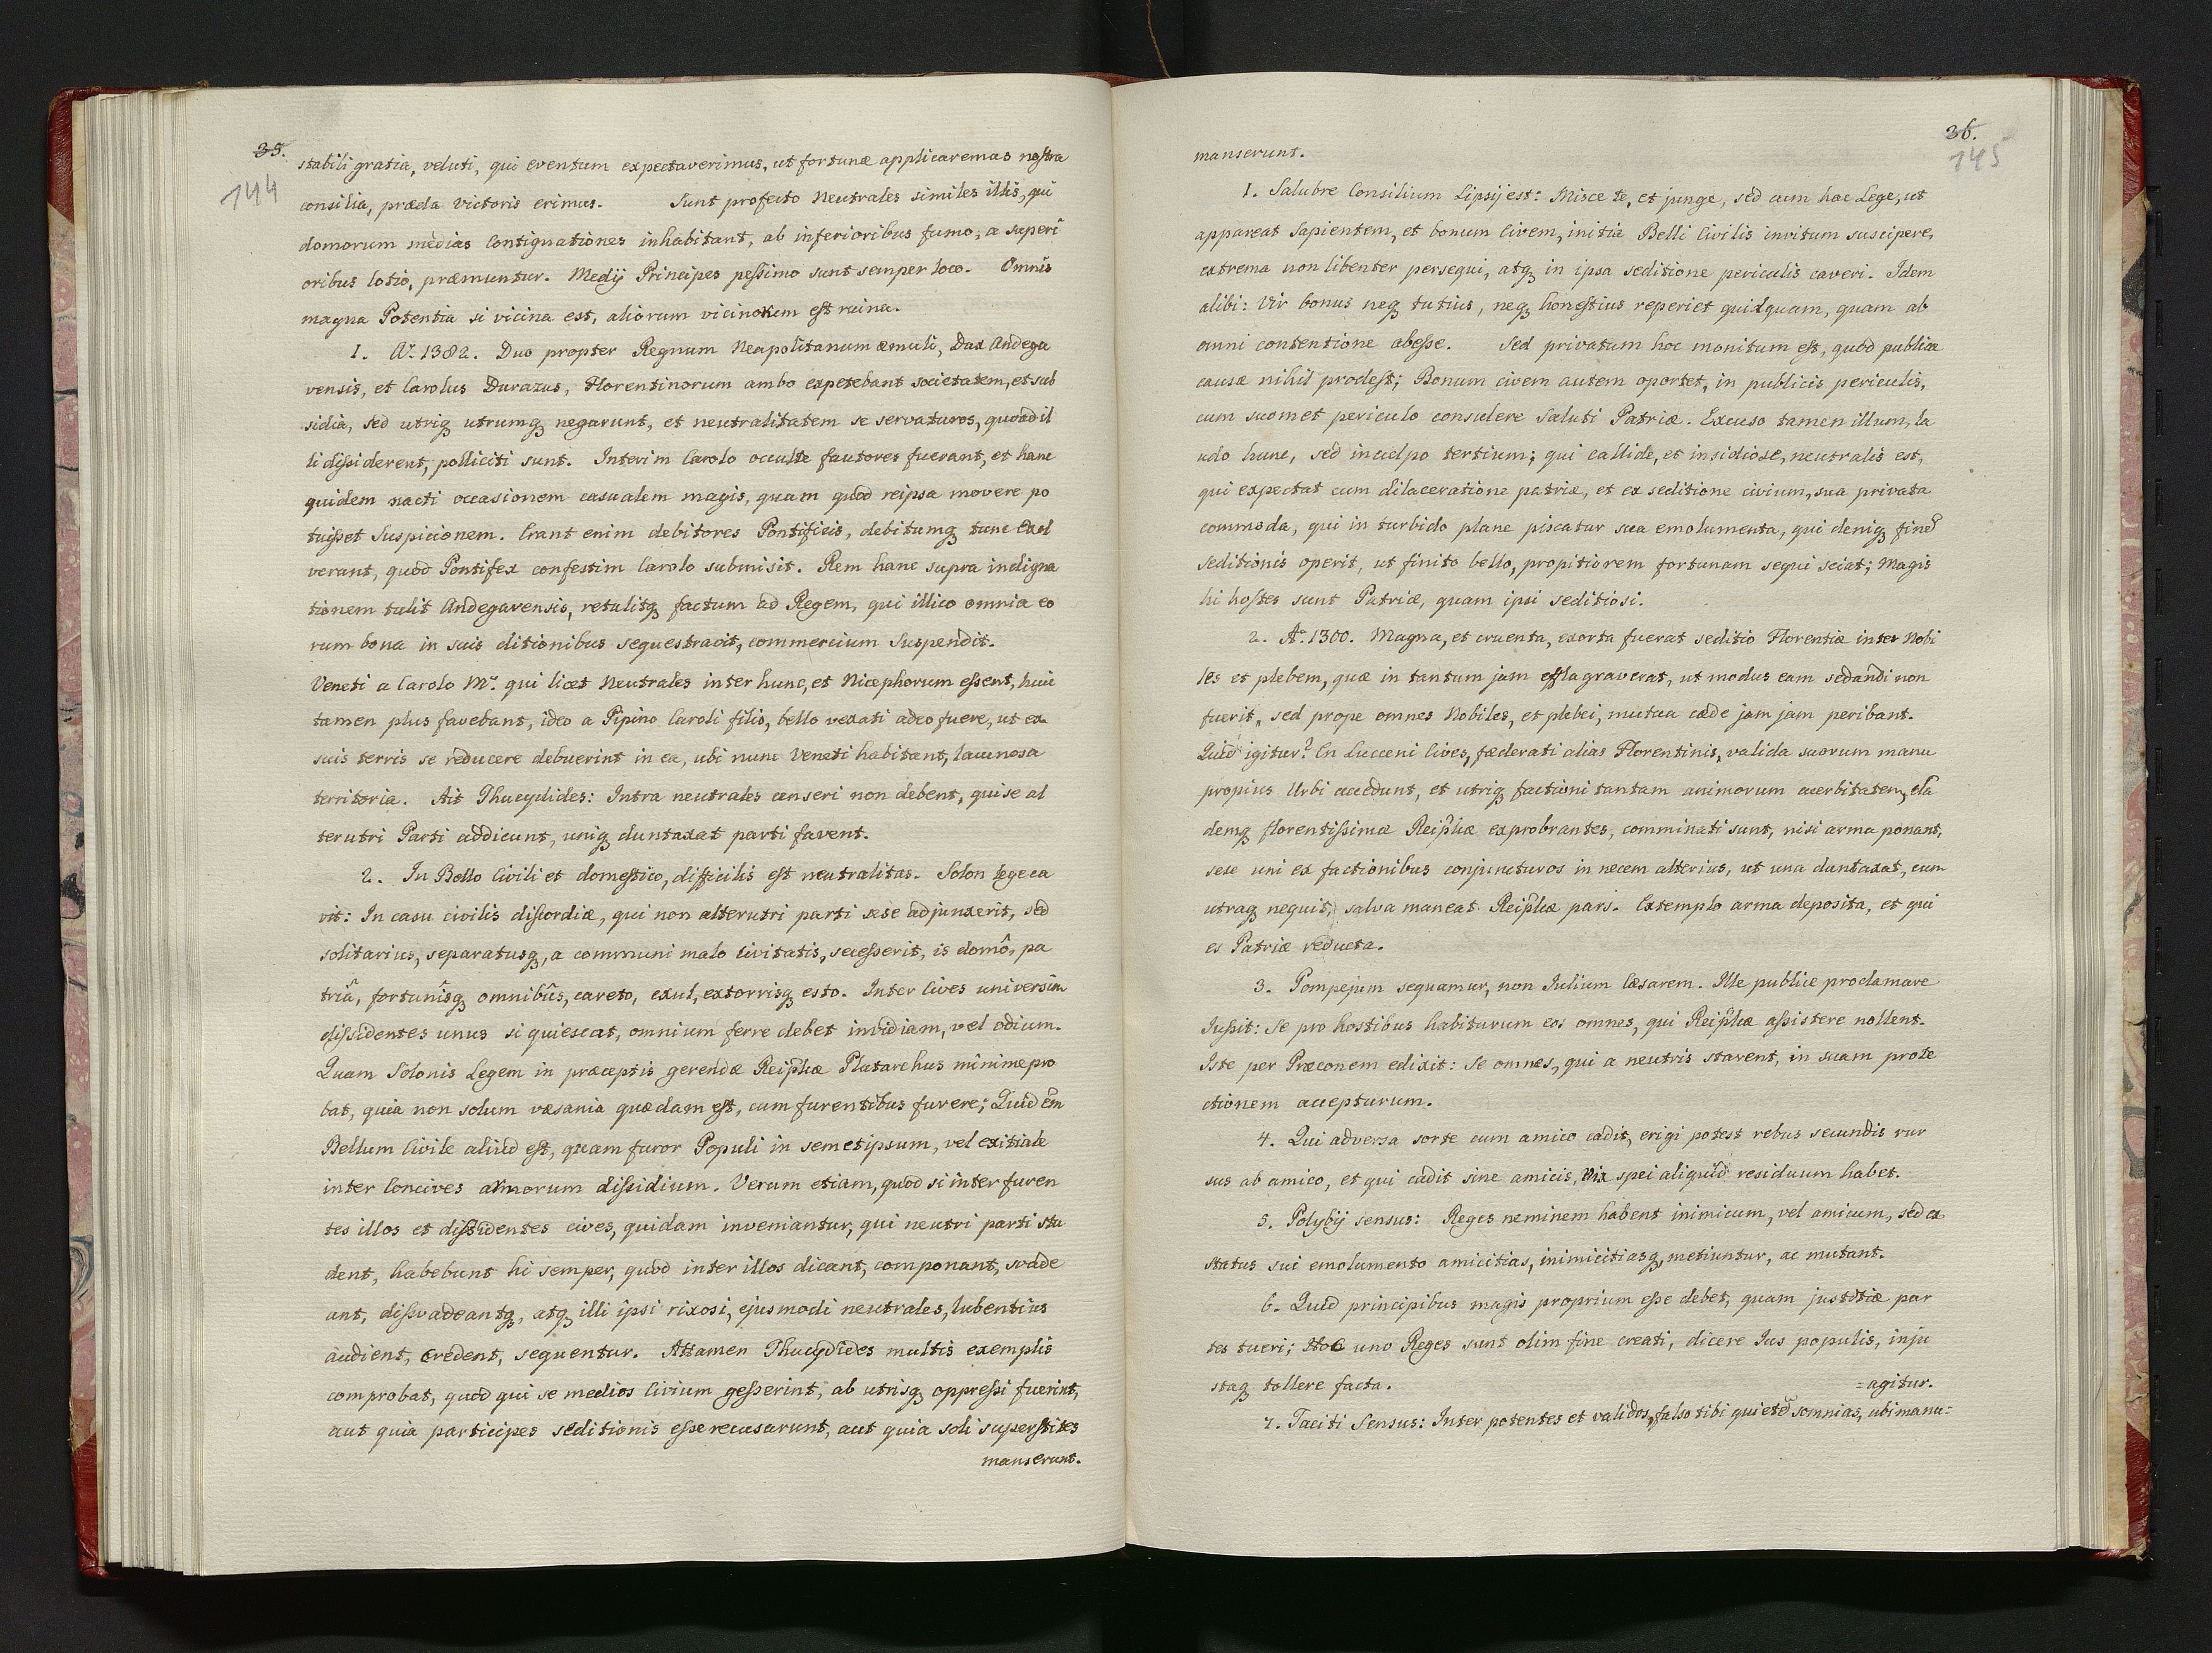 35.
144
stabili gratia, veluti, qui eventum expectaverimus, ut fortunæ applicaremus nostra
consilia, præda victoris erimus. Sunt profecto Neutrales similes illis, qui
domorum medias Contignationes inhabitant, ab inferioribus fumo, a superi
oribus lotio, præmuntur. Medij Principes pessimo sunt semper loco. Omnis
magna Potentia si vicina est, aliorum vicinorum est ruina.
1. Aº. 1382. Duo propter Regnum Neapolitanum æmuli, Dux Andega
vensis, et Carolus Durazus, Florentinorum ambo expetebant societatem, et sub
sidia, sed utriq utrumq negarunt, et neutralitatem se servaturos, quoad il
li dissiderent, polliciti sunt. Interim Carolo occulte fautores fuerant, et hanc
quidem nacti occasionem casualem magis, quam quod reipsa movere po
tuisset Suspicionem. Erant enim debitores Pontificis, debitumq tunc Exol
verant, quod Pontifex confestim Carolo submisit. Rem hanc supra indigna
tionem tulit Andegavensis, retulitq factum ad Regem, qui illico omnia eo
rum bona in suis ditionibus sequestravit, commercium Suspendit.
Veneti a Carolo Mº. qui licet Neutrales inter hunc, et Nicephorum essent, huic
tamen plus favebant, ideo a Pipino Caroli filio, bello vexati adeo fuere, ut ex
suis terris se reducere debuerint in ea, ubi nunc Veneti habitant, lacunosa
territoria. Ait Thucydides: Intra neutrales censeri non debent, qui se al
terutri Parti addicunt, uniq duntaxat parti favent.
2. In Bello Civili et domestico, difficilis est neutralitas. Solon lege ca
vit: In casu civilis discordiæ, qui non alterutri parti sese adjunxerit, sed
solitarius, separatusq, a communi malo Civitatis, secesserit, is domô, pa
triâ, fortunîsq omnibûs, careto, exul, extorrisq esto. Inter Cives universim
dissidentes unus si quiescat, omnium ferre debet invidiam, vel odium.
Quam Solonis Legem in præceptis gerendæ Reipłicæ Plutarchus minime pro
bat, quia non solum væsania quædam est, cum furentibus furere; Quid em̃
Bellum Civile aliud est, quam furor Populi in semetipsum, vel exitiale
inter Concives armorum dissidium. Verum etiam, quod si inter furen
tes illos et dissidentes cives, quidam inveniantur, qui neutri parti stu
dent, habebunt hi semper, quod inter illos dicant, componant, svade
ant, dissvadeantq, atq illi ipsi rixosi, ejusmodi neutrales, lubentius
audient, credent, sequentur. Attamen Thucydides multis exemplis
comprobat, quod qui se medios Civium gesserint, ab utrisq oppressi fuerint,
aut quia participes seditionis esse recusarunt, aut quia soli superstites
manserunt.
36.
145
manserunt.
1. Salubre Consilium Lipsij est: Misce te, et junge, sed cum hac Lege, ut
appareat Sapientem, et bonum Civem, initia Belli Civilis invitum suscipere,
extrema non libenter persequi, atq in ipsa seditione periculis caveri. Idem
alibi: Vir bonus neq tutius, neq honestius reperiet quidquam, quam ab
omni contentione abesse. Sed privatum hoc monitum est, quod publicæ
causæ nihil prodest; Bonum civem autem oportet, in publicis periculis,
cum suomet periculo consulere Saluti Patriæ. Excuso tamen illum, la
udo hunc, sed inculpo tertium; qui callide, et insidiose, neutralis est,
qui expectat cum dilaceratione patriæ, et ex seditione civium, sua privata
commoda, qui in turbido plane piscatur sua emolumenta, qui deniq finẽ
seditionis operit, ut finito bello, propitiorem fortunam sequi sciat; Magis
hi hostes sunt Patriæ, quam ipsi seditiosi.
2. Aº. 1300. Magna, et cruenta, exorta fuerat seditio Florentiæ inter Nobi
les et plebem, quæ in tantum jam efflagraverat, ut modus eam sedandi non
fuerit, sed prope omnes Nobiles, et plebei, mutua cæde jam jam peribant.
Quid igitur? En Lucceni Cives, fæderati alias Florentinis, valida suorum manu
propius Urbi accedunt, et utriq factioni tantam animorum acerbitatem, cla
demq florentissimæ Reipłicæ exprobrantes, comminati sunt, nisi arma ponant,
sese uni ex factionibus conjuncturos in necem alterius, ut una duntaxat, cum
utraq nequit, salva maneat Reipłicæ pars. Extemplo arma deposita, et qui
es Patriæ reducta.
3. Pompejum sequamur, non Julium Cæsarem. Ille publice proclamare
Jussit: Se pro hostibus habiturum eos omnes, qui Reipłicæ assistere nollent.
Iste per Præconem edixit: Se omnes, qui a neutris starent, in suam prote
ctionem accepturum.
4. Qui adversa sorte cum amico cadit, erigi potest rebus secundis rur
sus ab amico, et qui cadit sine amicis, Vix spei aliquid residuum habet.
5. Polybij sensus: Reges neminem habent inimicum, vel amicum, sed ex
status sui emolumento amicitias, inimicitiasq, metiuntur, ac mutant.
6. Quid principibus magis proprium esse debet, quam justitiæ par
tes tueri; Hoc uno Reges sunt olim fine creati, dicere Jus populis, inju
staq tollere facta.
=agitur.
7. Taciti Sensus: Inter potentes et validos, falso tibi quietẽ somnias, ubi manu=